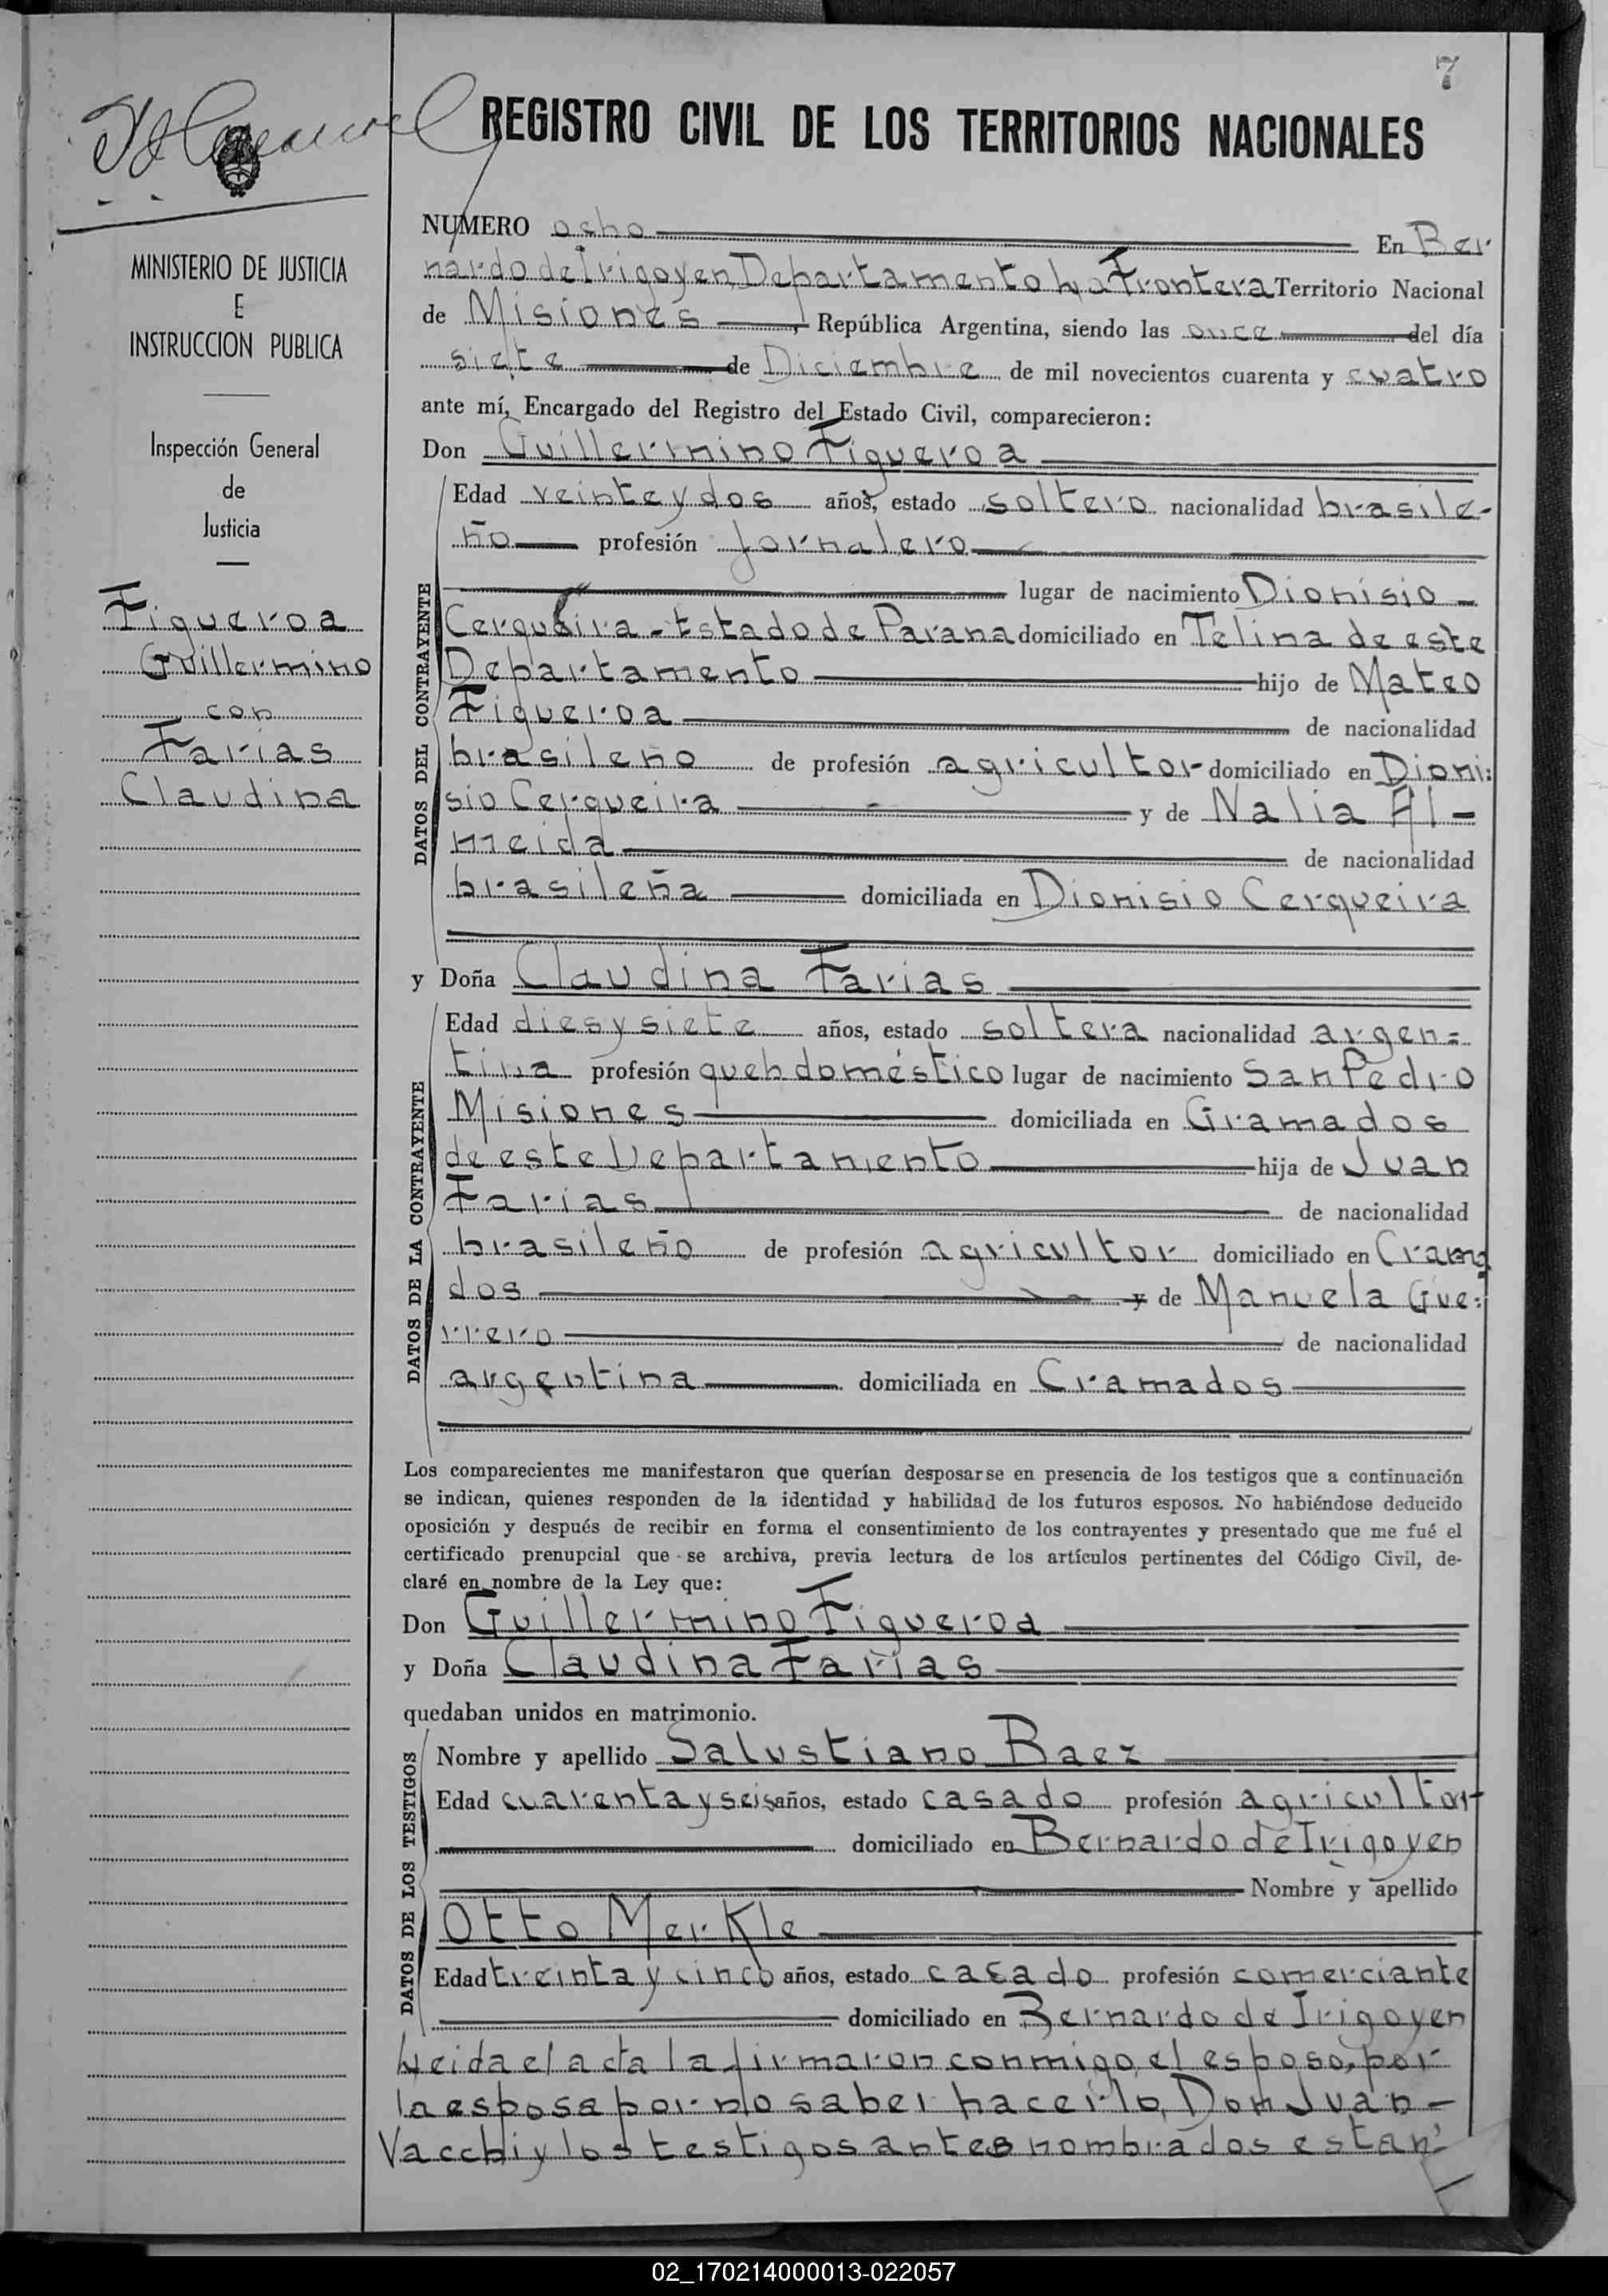 7
REGISTRO CIVIL DE LOS TERRITORIOS NACIONALES
MINISTERIO DE JUSTICIA
E
INSTRUCCION PUBLICA
Inspección General
de
Justicia
Figueroa
Guillermino
con
Farias
Claudina
NUMERO ocho En Ber-
nardo de Irigoyen, Departamento La Frontera Territorio Nacional
de Misiones, República Argentina, siendo las once del día
siete de Diciembre de mil novecientos cuarenta y cuatro
ante mí, Encargado del Registro del Estado Civil, comparecieron:
Don Guillermino Figueroa
DATOS DEL CONTRAYENTE
Edad veinte y dos años, estado soltero nacionalidad brasile-
ño profesión jornalero
lugar de nacimiento Dionisio -
Cerqueira - Estado de Parana domiciliado en Telina de este
Departamento hijo de Mateo
Figueroa de nacionalidad
brasileño de profesión agricultor domiciliado en Dioni:
sio Cerqueira y de Nalia Al-
meida de nacionalidad
brasileña domiciliada en Dionisio Cerqueira
y Doña Claudina Farias
DATOS DE LA CONTRAYENTE
Edad diesysiete años, estado soltera nacionalidad argen=
tina profesión queh doméstico lugar de nacimiento San Pedro
Misiones domiciliada en Gramados
de este Departamento hija de Juan
Farias de nacionalidad
brasileño de profesión agricultor domiciliado en Crama
dos y de Manuela Gue:
rrero de nacionalidad
argentina domiciliada en Cramados
Los comparecientes me manifestaron que querían desposarse en presencia de los testigos que a continuación
se indican, quienes responden de la identidad y habilidad de los futuros esposos. No habiéndose deducido
oposición y después de recibir en forma el consentimiento de los contrayentes y presentado que me fué el
certificado prenupcial que se archiva, previa lectura de los artículos pertinentes del Código Civil, de-
claré en nombre de la Ley que:
Don Guillermino Figueroa
y Doña Claudina Farias
quedaban unidos en matrimonio.
DATOS DE LOS TESTIGOS
Nombre y apellido Salustiano Baez
Edad cuarenta y seis años, estado casado profesión agricultor
domiciliado en Bernardo de Irigoyen
Nombre y apellido
Otto Merkle
Edad treinta y cinco años, estado casado profesión comerciante
domiciliado en Bernardo de Irigoyen
Leida el acta la firmaron conmigo, el esposo, por
la esposa por no saber hacerlo, Dom Juan -
Vacchi y los testigos antes nombrados estan'
02_170214000013-022057